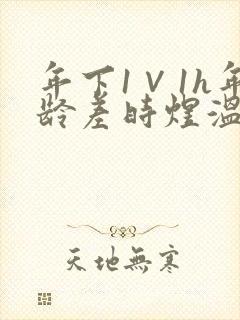 年下1V1h年
龄差时煌温
天地無寒